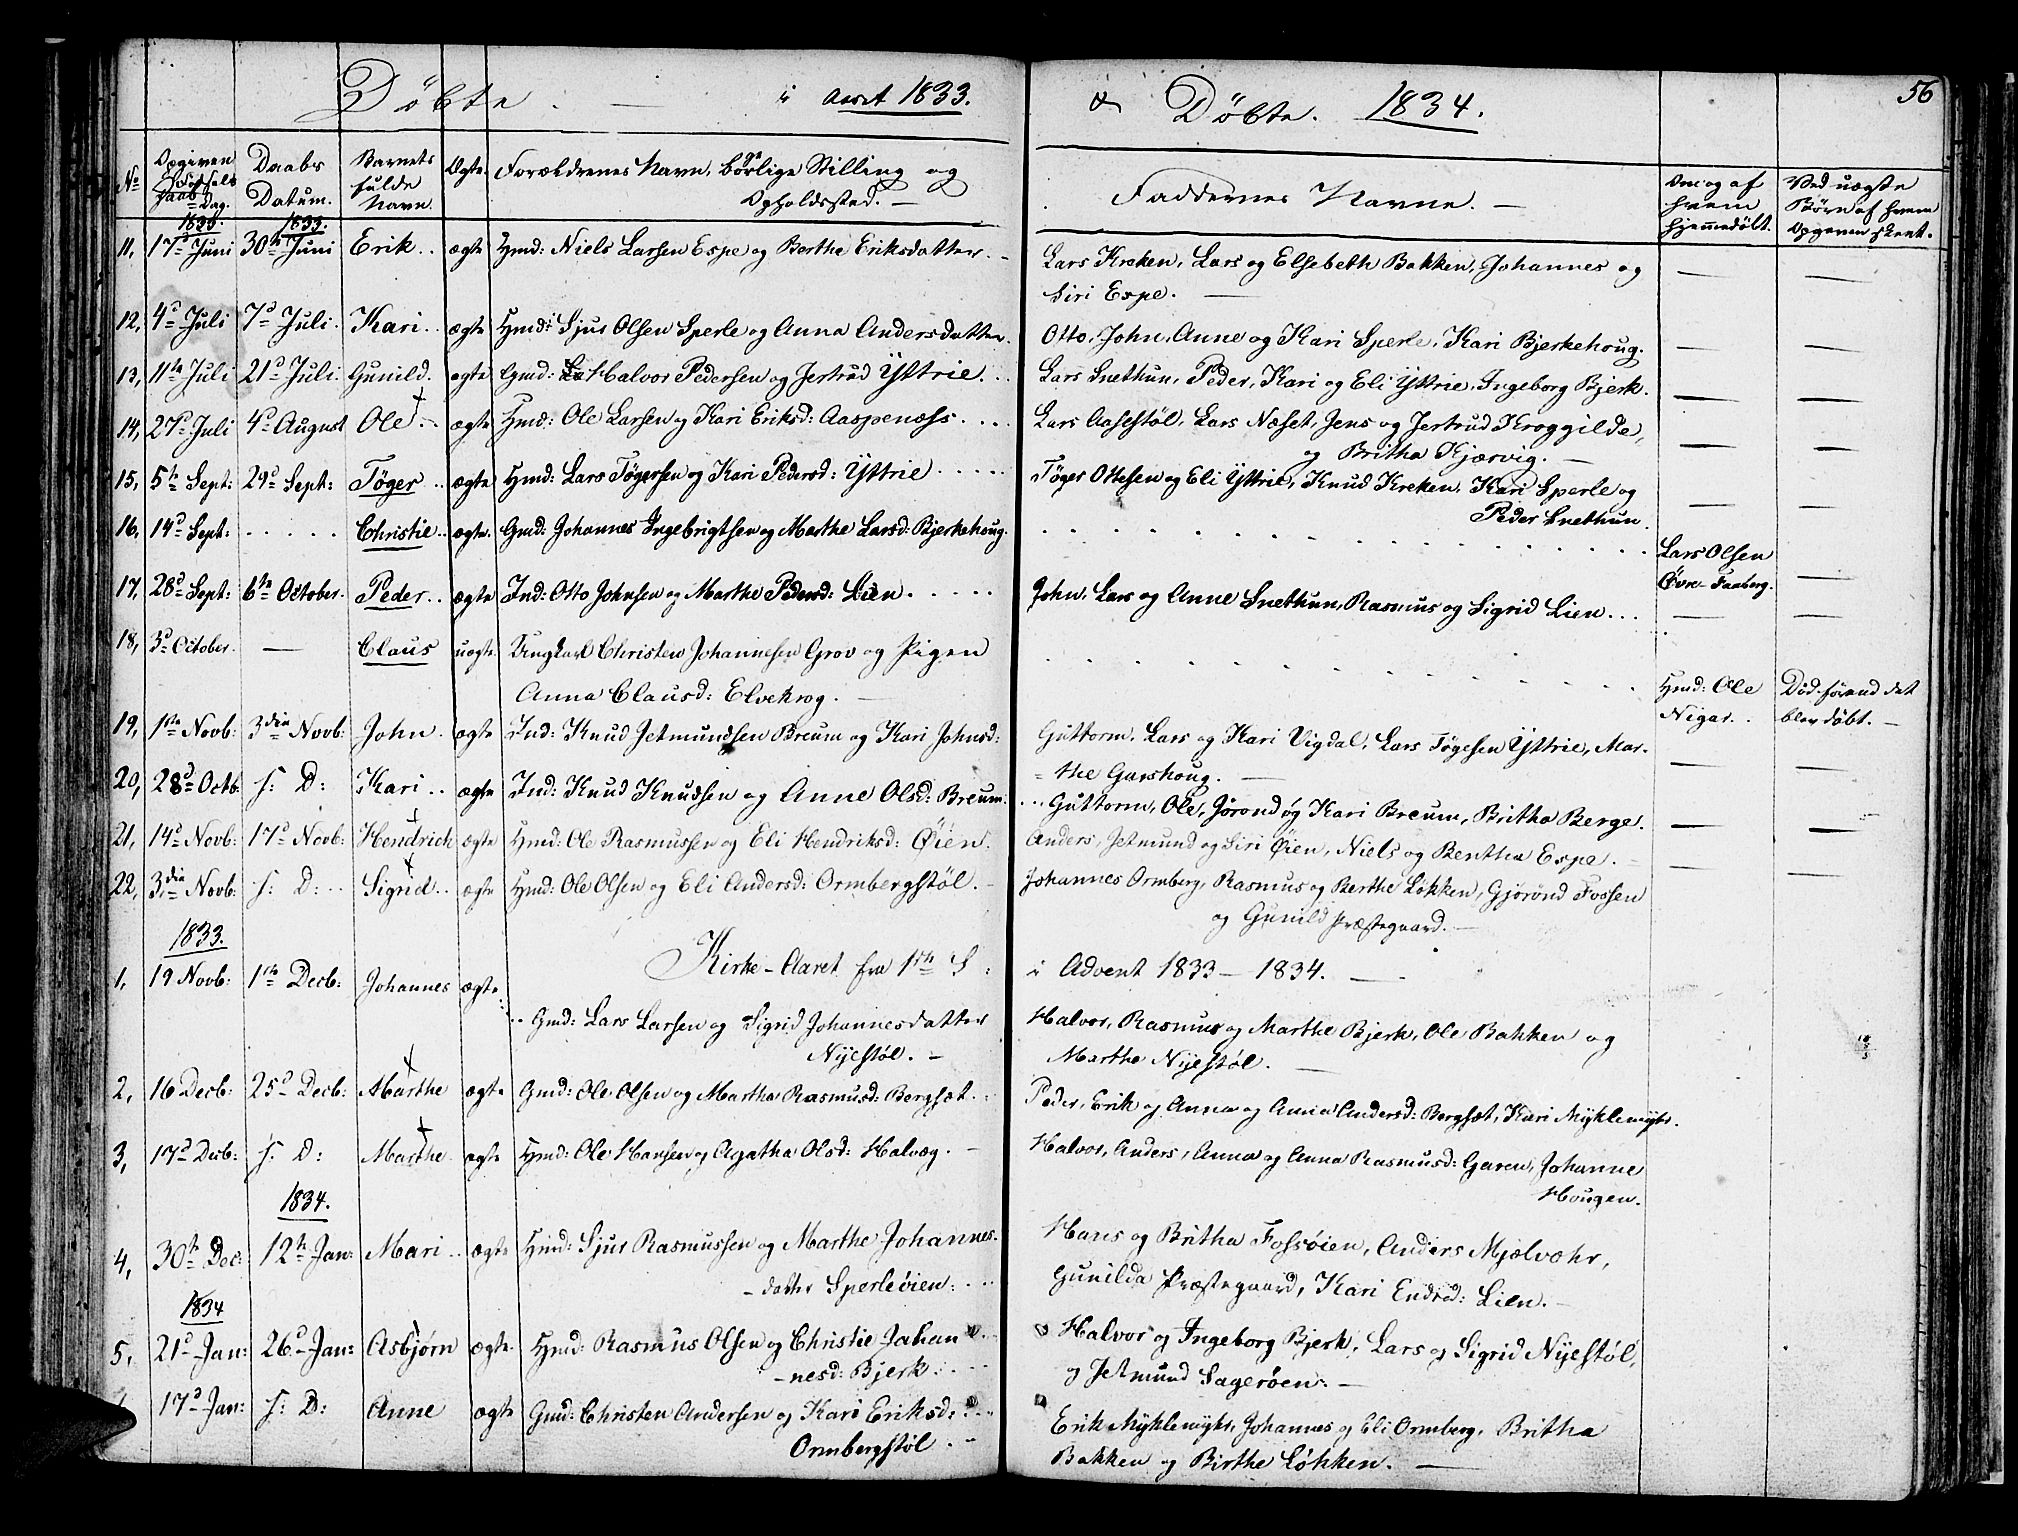 Døbte. — i Aaret 1833.
& Døbte. 1834.
56
No
Opgiven
Fødsels
Daab
Dag.
Daabs
Datum.
Barnets
fulde
Navn
Ægte.
Forældrenes Navn, borgerlige Stilling og
Opholdssted. —
Faddernes Navne. —
Om og af
hvem
hjemmedøbt.
Ved uægte
Børn af hvem
Opgaven skeet.
1833. 1833.
11, 17d Juni 30th Juni Erik.. ægte Hmd: Niels Larsen Espe og Berthe Eriksdatter. —
Lars Kreken, Lars og Elsebeth Bakken, Johannes og
Siri Espe. —
12, 4d Juli 7d Juli. Kari.. ægte Hmd: Sjur Olsen Sperle og Anna Andersdatter.
Otto, John, Anne og Kari Sperle, Kari Bjerkehoug.
13, 11te Juli 21d Juli. Gunild. ægte Gmd: Halvor Pedersen og Jertrud Yttrie...
Lars Snethun, Peder, Kari og Eli Yttrie, Ingeborg Bjerk.
14, 27d Juli 4d August Ole.. ægte Hmd: Ole Larsen og Kari Eriksd: Aaspenæss....
Lars Aasestøl, Lars Næset, Jens og Jertrud Kroggilde,
og Britha Kjærvig. —
15, 5th Sept: 29d Sept: Tøger.. ægte Hmd: Lars Tøgersen og Kari Pedersd: Yttrie.....
Tøger Ottesen og Eli Yttrie, Knud Kreken, Kari Sperle og
Peder Snethun.
16, 14d Sept: ..... Christie.. ægte. Gmd: Johannes Ingebrigtsen og Marthe Larsd: Bjerkehoug.
Lars Olsen
Øvre Faaberg.
17, 28d Sept: 6te October. Peder.. ægte Ind: Otto Johnsen og Marthe Pedersd: Lien.....
John, Lars og Anne Snethun, Rasmus og Sigrid Lien...
18, 3d October. — Claus uægte. Ungkarl Christen Johannesen Grov og Pigen
Anna Clausd: Elvekrog. —
Hmd: Ole
Nigar..
Død førend det
blev døbt. —
19, 1ste Novb: 3die Novb: John. ægte Ind: Knud Jetmundsen Breum og Kari Johnsd:
Guttorm, Lars og Kari Vigdal, Lars Tøgesen Yttrie, Mar-
the Garshoug. —
20, 28d Octb. s: D: Kari.. ægte Ind: Knud Knudsen og Anne Olsd: Breum.
Guttorm, Ole, Jørond og Kari Breum, Britha Berge.
21, 14d Novb: 17d Novb: Hendrich ægte Hmd: Ole Rasmussen og Eli Hendriksd: Øien.
Anders, Jetmund og Siri Øien, Niels og Bertha Espe. —
22, 3die Novb: s: D:.. Sigrid.. ægte Hmd: Ole Olsen og Eli Andersd: Ormbergstøl. —
Johannes Ormberg, Rasmus og Berthe Løkken, Gjørond Fossen
og Gunild Præstegaard. —
1833.
Kirke-Aaret fra 1ste S:
i Advent 1833 — 1834. —
1, 19 Novb: 1ste Decb: Johannes ægte.
Gmd: Lars Larsen og Sigrid Johannesdatter
Nyestøl. —
Halvor, Rasmus og Marthe Bjerk, Ole Bakken og
Marthe Nyestøl. —
2, 16 Decb: 25d Decb: Marthe ægte Gmd: Ole Olsen og Martha Rasmusd: Bergsæt...
Peder, Erik og Anna og Anna Andersd: Bergsæt, Kari Myklemyhr.
3, 17d Decb: s: D: Marthe. ægte Hmd: Ole Hansen og Agatha Olsd: Halvæg. —
Halvor, Anders, Anna og Anna Rasmusd: Garen, Johanne
Hougen.
1834.
4, 30th Dec: 12th Jan: Mari.. ægte Hmd: Sjur Rasmussen og Marthe Johannes-
- datter Sperleøien:...
Hans og Britha Fossøien, Anders Mjelvæhr,
Gunilda Præstegaard, Kari Endred: Lien. —
1834
5, 21d Jan: 26d Jan: Asbjørn ægte. Hmd: Rasmus Olsen og Christie Johan-
- nesd: Bjerk:...
Halvor og Ingeborg Bjerk, Lars og Sigrid Nyestøl,
og Jetmund Sagerøen. —
17d Jan: s: D: Anne ægte Gmd: Christen Andersen og Kari Eriksd:
Ormbergstøl. —
Erik Myklemyhr, Johannes og Eli Ormberg, Britha
Bakken og Birthe Løkken. —